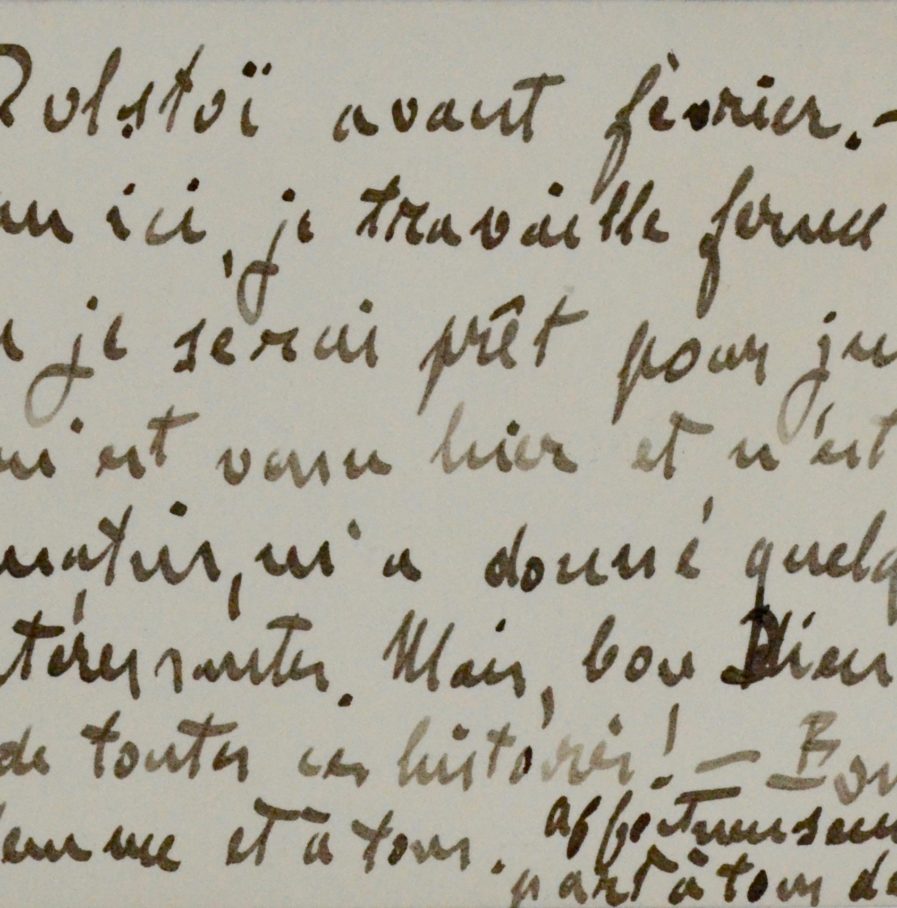 Tolstoï avant février.-
ici, je travaille ferme
je serai prêt pour
est venu hier et n'est
matin, m'a donné quelq
téressantes. Mais, bon Dieu
de toutes ces histoires! - Bon
femme et à tous. affectueusem
part à tous de